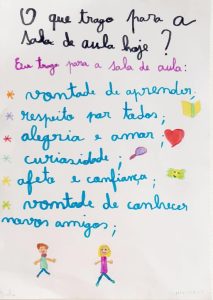 O que trago para a
sala de aula hoje?
Eu trago para a sala de aula:
* vontade de aprender;
* respeito por todos;
* alegria e amar;
* curiosidade;
* afeto e confiança;
* vontade de conhecer
novos amigos;